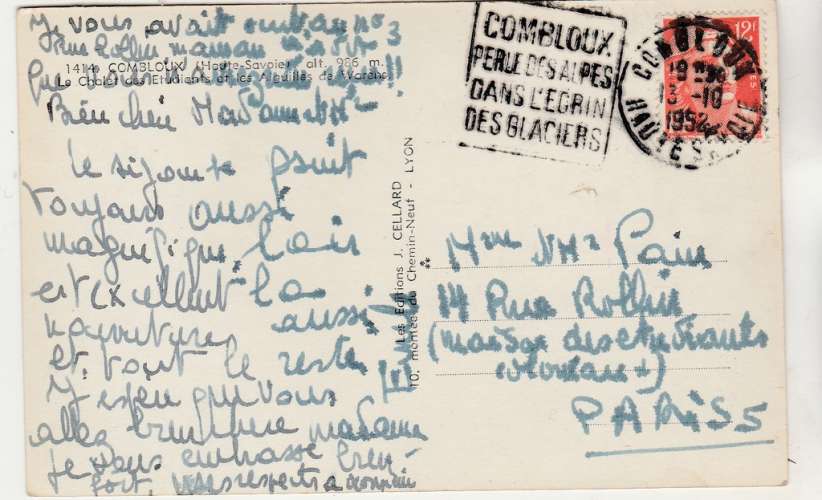 Je vous avait
Rue Rollin maman
1414. COMBLOUX (Haute-Savoie) alt. 986 m.
Le Chalet des Etudiants et les Aiguilles de Warens
Bien chère Madame
Le séjour
toujours aussi
magnifique, l'air
est excellent la
nourriture aussi
et tout le reste.
J'espère que vous
allez madame
je vous embrasse bien
fort, respects a
Les Editions J. CELLARD
10, montée du Chemin-Neuf - LYON
COMBLOUX
PERLE DES ALPES
DANS L'ECRIN
DES GLACIERS
12F
COMBLOUX
1952
HAUTE SAVOIE
Mme
14 Rue Rollin
(maison des etudiants
PARIS 5